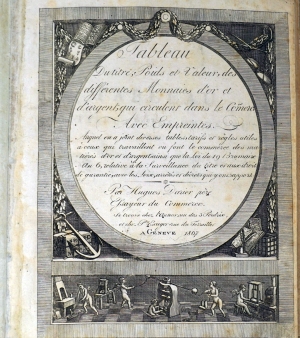 Tableau
Du titre, Poids et Valeur, des
différentes Monnaies d'or et
d'argent, qui circulent dans le Comerce
Avec Empreintes.
Auquel on a joint diverses tables tarifs et règles utiles
à ceux qui travaillent ou font le commerce des ma
tières d'or et d'argent ainsi que la loi du 19 Brumaire
An 6, relative à la Surveillance du titre et aux droits
de garantie, avec les Loix, arrêtés et décrets qui y ont rapport
Par Hugues Darier père
Essayeur du Commerce.
Se trouve chez
et chez
A GENEVE 1807